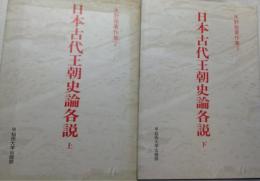 水野祐著作集 2
日本古代王朝史論各説
上
早稲田大学出版部
日本古代王朝史論各説
下
早稲田大学出版部